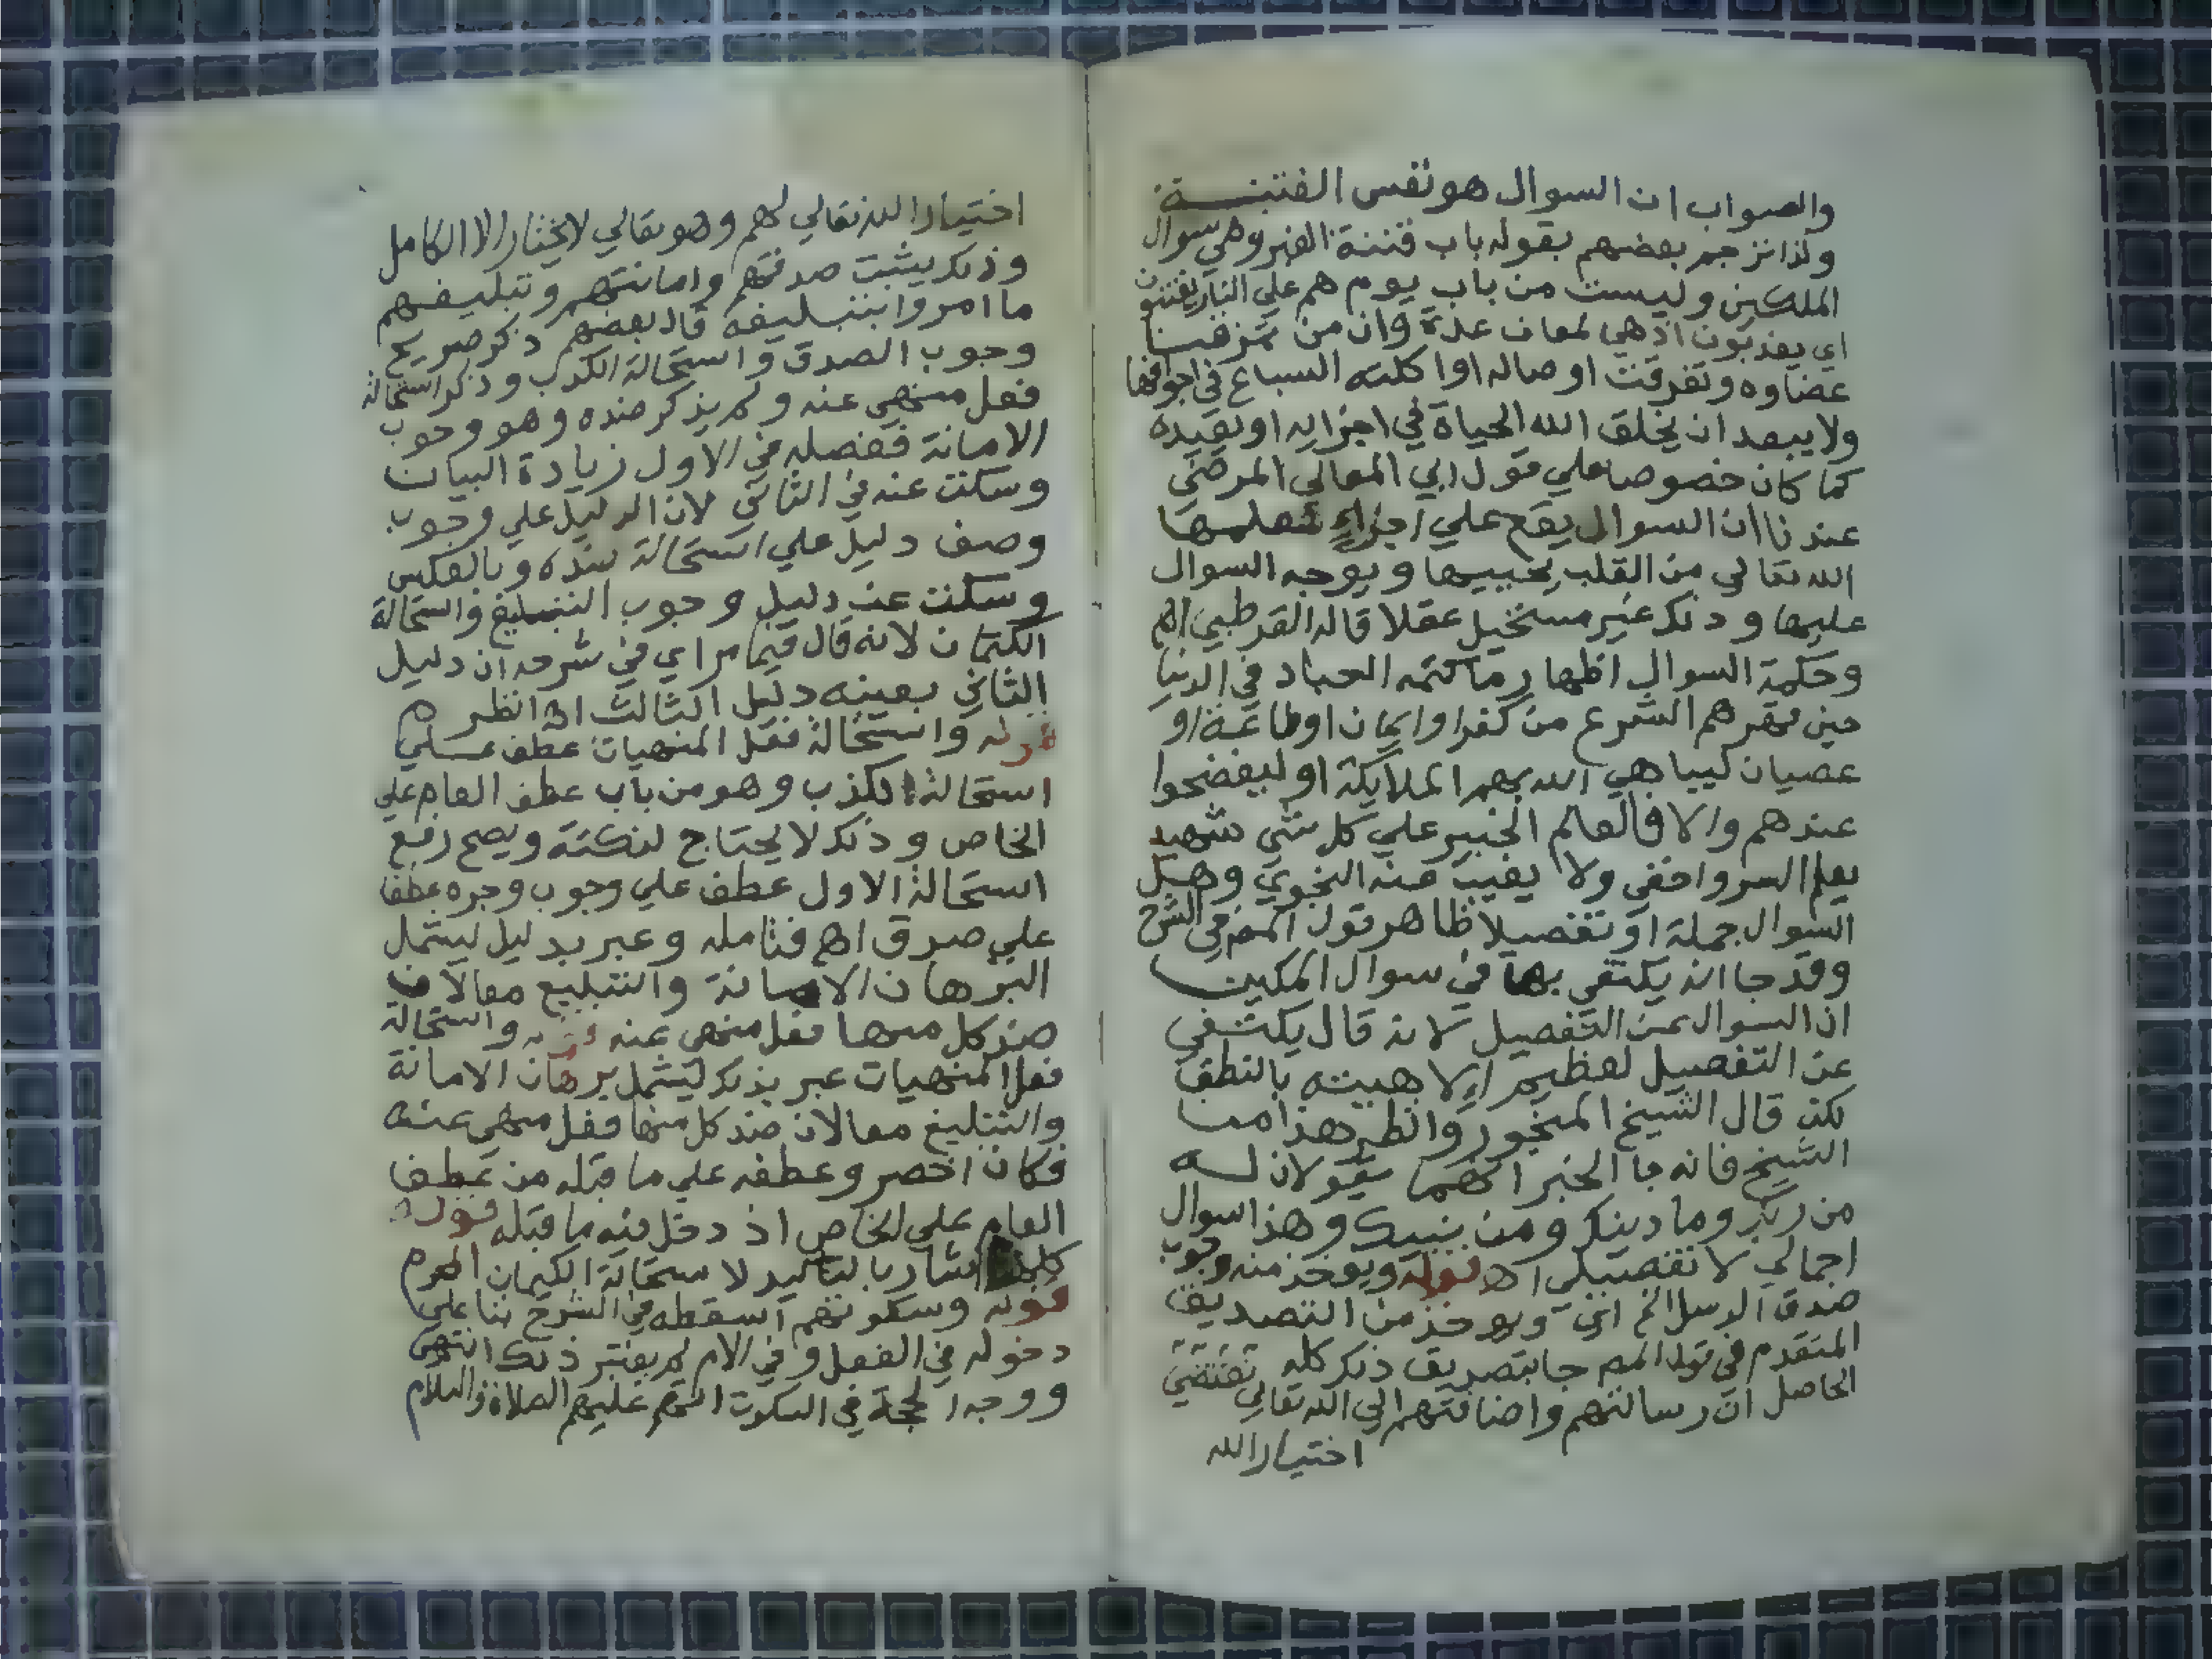 والصواب ان السوال هو نفس الفتنـــة
ولذا ترجم بعضهم بقوله باب فتنة القبر وهي سوال
الملكين وليست من باب يوم هم علي النار يفتنون
اي يعذبون اذ هي لمعان عدة وان من تمزقت
عضاوه وتفرقت اوصاله او اكلته السباع في اجوافها
ولا يبعد ان يخلق الله الحياة في اجزايه او يعيده
كما كان خصوصا علي قول ابي المعالي المرضي
عندنا ان السوال يقع علي اجزاء يعلمها
الله تعالي من القلب يحييها ويوجه السوال
عليها وذلك غير مستحيل عقلا قاله القرطبي اهـ
وحكمة السوال اظهار ما كتمه العباد في الدنيا
حين قهرهم الشرع من كفر او ايمان او طاعة او
عصيان ليباهي الله بهم الملايكة او ليفضحوا
عندهم والا فالعالم الخبير علي كل شي شهيد
يعلم السر واخفي ولا يغيب عنه النجوي وهل
السوال جملة او تفصيلا ظاهر قول المص في الشرح
وقد جا انه يكتفي بها في سوال الملكين
ان السوال عن التفصيل لانه قال يكتفي
عن التفصيل لعظيم هيبته بالنطق
لكن قال الشيخ المنجور وانظر هذا مع
الشيخ فانه جا الخبر انهما يقولان لـــه
من ربك وما دينك ومن نبيك وهذا سوال
اجمالي لا تفصيلي اهـ قوله ويوخذ منه وجوب
صدق الرسل الخ اي ويوخذ من التصديق
المتقدم في قوله المص جا بتصديق ذلك كله
الحاصل ان رسالتهم واضافتهم الي الله تعالي تقتضي
اختيار الله
اختيار الله تعالي لهم وهو تعالي لا يختار الا الكامل
وذلك يثبت صدقهم وامانتهم وتبليغهم
ما امروا بتبليغه قال بعضهم ذكر صريح
وجوب الصدق واستحالة الكذب وذكر استحالة
فعل منهي عنه ولم يذكر ضده وهو وجوب
الامانة ففصله في الاول زيادة البيان
وسكت عنه في الثاني لان الدليل علي وجوب
وصف دليل علي استحالة ضده وبالعكس
وسكت عن دليل وجوب التبليغ واستحالة
الكتمان لانه قال فيما مر اي في شرحه ان دليل
الثاني بعينه دليل الثالث اهـ انظر هـ
قوله واستحالة فعل المنهيات عطف علـــي
استحالة الكذب وهو من باب عطف العام علي
الخاص وذلك لا يحتاج لنكتة ويصح رفع
استحالة الاول عطف علي وجوب وجره عطفا
علي صدق اهـ فتامله وعبر بدليل ليشمل
البرهان الامانة والتبليغ معا لان
ضد كل منهما فعل منهي عنه قوله واستحالة
فعل المنهيات عبر بذلك ليشمل برهان الامانة
والتبليغ معا لان ضد كل منها فعل منهي عنه
فكان اخصر وعطفه علي ما قبله من عطف
العام علي الخاص اذ دخل فيه ما قبله قوله
كلها اشار بالتاكيد لاستحالة الكتمان
قوله وسكوتهم اسقطه في الشرح بنا علي
دخوله في الفعل وفي الام لم يعتبر ذلك انتهي
ووجه الحجة في السكوت انهم عليهم الصلاة والسلام